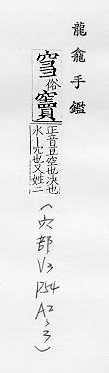 龍龕手鑑
窬俗竇正音豆空也决也
水ㄧ尢也又姓二
(穴部
V3
P54
A2
、3)